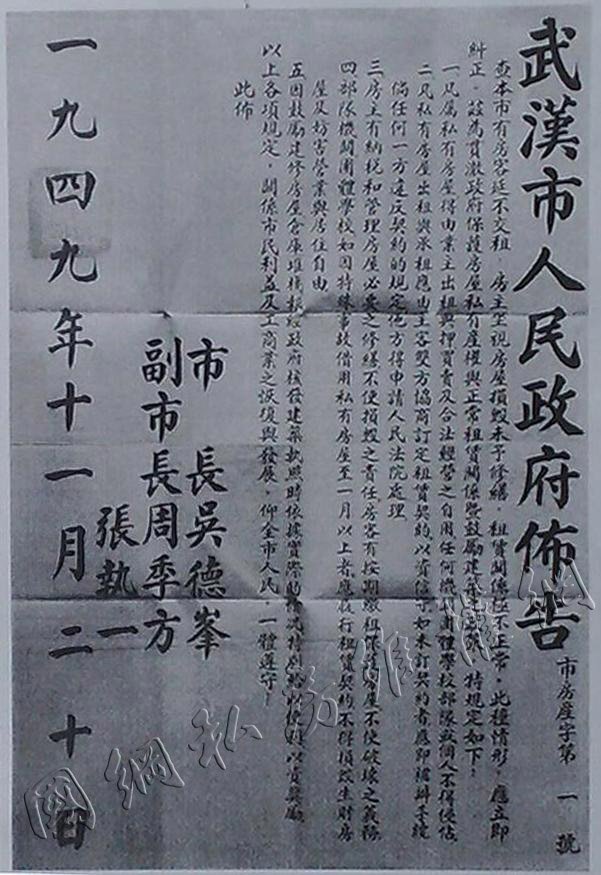 武漢市人民政府佈告
市房產字第一號
查本市有房客廷不交租，房主坐視房屋損毀未予修繕，租賃關係極不正常，此種情形，應立即
糾正。茲為貫澈政府保護房屋私有產權與正常租賃關係暨鼓勵建 特規定如下：
一凡屬私有房屋得由業主出租典押買賣及合法經營之自用任何機 團體學校部隊或個人不得侵佔
二凡私有房屋出租與承租應由主客雙方協商訂定租賃契約，以資信守如未訂契約者應即補辦手續
倘任何一方違反契約的規定他方得申請人民法院處理
三房主有納稅和管理房屋必要之修繕不使損毀之責任房客有按期繳租 房屋不使破壞之義務
四部隊機關團體學校如因特殊事故借用私有房屋至一月以上者，應履行租賃契約不得損毀生財房
屋及妨害營業與居住自由
五因鼓勵建修房屋倉庫堆棧報經政府核發建築執照時依據實際 況特別 以資獎勵
以上各項規定，關係市民利益及工商業之恢復與發展，仰全市人民，一體遵守！
此佈
市長吳德峯
副市長周季方
張執一
一九四九年十一月二十日